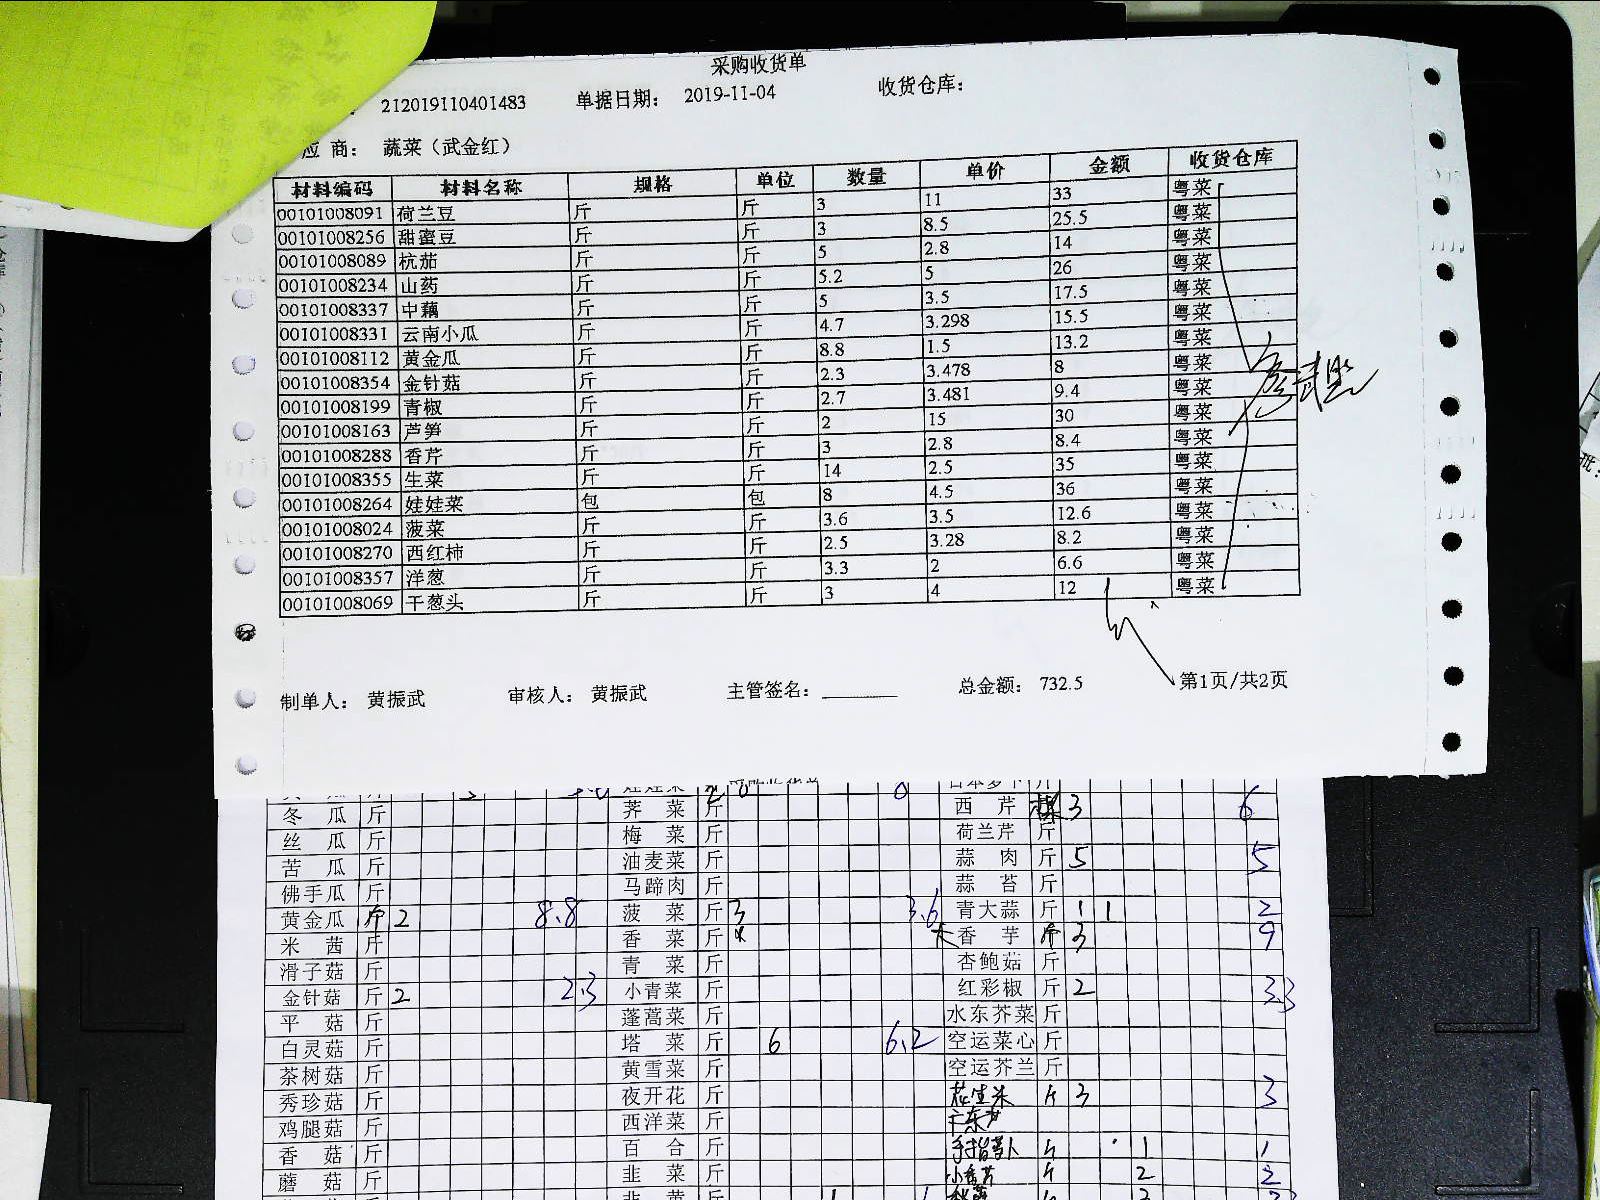 采购收货单
212019110401483 单据日期： 2019-11-04 收货仓库：
应 商： 蔬菜（武金红）
材料编码 材料名称 规格 单位 数量 单价 金额 收货仓库
00101008091 荷兰豆 斤 斤 3 11 33 粤菜
00101008256 甜蜜豆 斤 斤 3 8.5 25.5 粤菜
00101008089 杭茄 斤 斤 5 2.8 14 粤菜
00101008234 山药 斤 斤 5.2 5 26 粤菜
00101008337 中藕 斤 斤 5 3.5 17.5 粤菜
00101008331 云南小瓜 斤 斤 4.7 3.298 15.5 粤菜
00101008112 黄金瓜 斤 斤 8.8 1.5 13.2 粤菜
00101008354 金针菇 斤 斤 2.3 3.478 8 粤菜
00101008199 青椒 斤 斤 2.7 3.481 9.4 粤菜
00101008163 芦笋 斤 斤 2 15 30 粤菜
00101008288 香芹 斤 斤 3 2.8 8.4 粤菜
00101008355 生菜 斤 斤 14 2.5 35 粤菜
00101008264 娃娃菜 包 包 8 4.5 36 粤菜
00101008024 菠菜 斤 斤 3.6 3.5 12.6 粤菜
00101008270 西红柿 斤 斤 2.5 3.28 8.2 粤菜
00101008357 洋葱 斤 斤 3.3 2 6.6 粤菜
00101008069 干葱头 斤 斤 3 4 12 粤菜
制单人： 黄振武 审核人： 黄振武 主管签名： 总金额： 732.5 第1页/共2页
冬 瓜 斤 荠 菜 斤 西 芹 3 6
丝 瓜 斤 梅 菜 斤 荷兰芹 斤
苦 瓜 斤 油麦菜 斤 蒜 肉 斤 5 5
佛手瓜 斤 马蹄肉 斤 蒜 苔 斤
黄金瓜 斤 2 8.8 菠 菜 斤 3 3.6 青大蒜 斤 1 1 2
米 茜 斤 香 菜 斤 香 芋 斤 3 9
滑子菇 斤 青 菜 斤 杏鲍菇 斤
金针菇 斤 2 2.3 小青菜 斤 红彩椒 斤 2 3.3
平 菇 斤 蓬蒿菜 斤 水东芥菜 斤
白灵菇 斤 塔 菜 斤 6 6.2 空运菜心 斤
茶树菇 斤 黄雪菜 斤 空运芥兰 斤
秀珍菇 斤 夜开花 斤 花生米 斤 3 3
鸡腿菇 斤 西洋菜 斤
香 菇 斤 百 合 斤 手指萝卜 斤 1 1
蘑 菇 斤 韭 菜 斤 斤 2 2